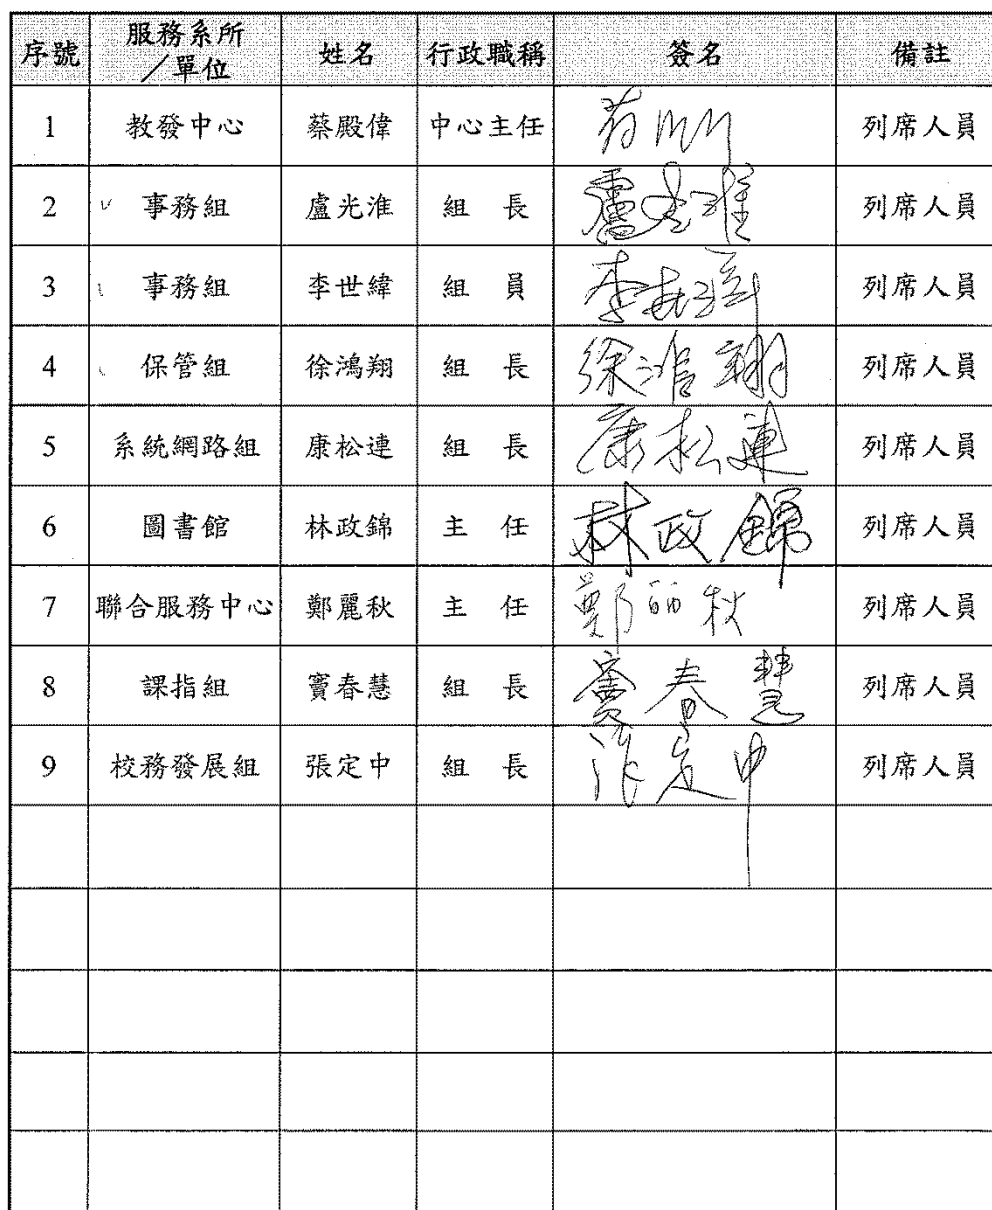 序號 服務系所／單位 姓名 行政職稱 簽名 備註
1 教發中心 蔡殿偉 中心主任 列席人員
2 事務組 盧光淮 組 長 盧光淮 列席人員
3 事務組 李世緯 組 員 李世緯 列席人員
4 保管組 徐鴻翔 組 長 徐鴻翔 列席人員
5 系統網路組 康松連 組 長 康松連 列席人員
6 圖書館 林政錦 主 任 林政錦 列席人員
7 聯合服務中心 鄭麗秋 主 任 鄭丽秋 列席人員
8 課指組 竇春慧 組 長 竇春慧 列席人員
9 校務發展組 張定中 組 長 張定中 列席人員